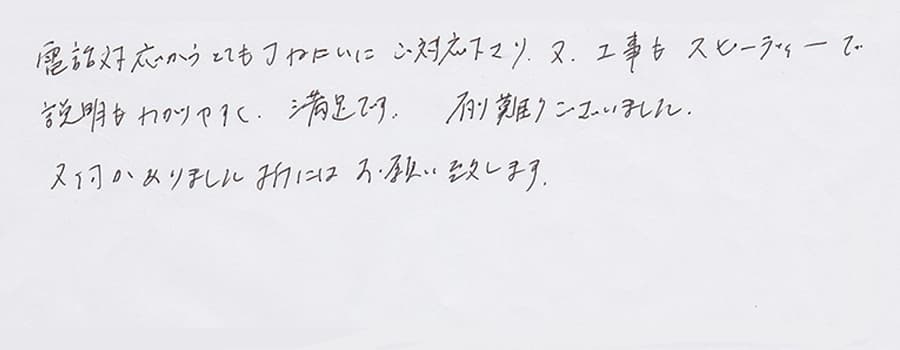 電話対応からとても丁ねいにご対応下さり、又、工事もスピーディーで
説明もわかりやすく、満足です。 有り難うございました。
又何かありました折にはお願い致します。